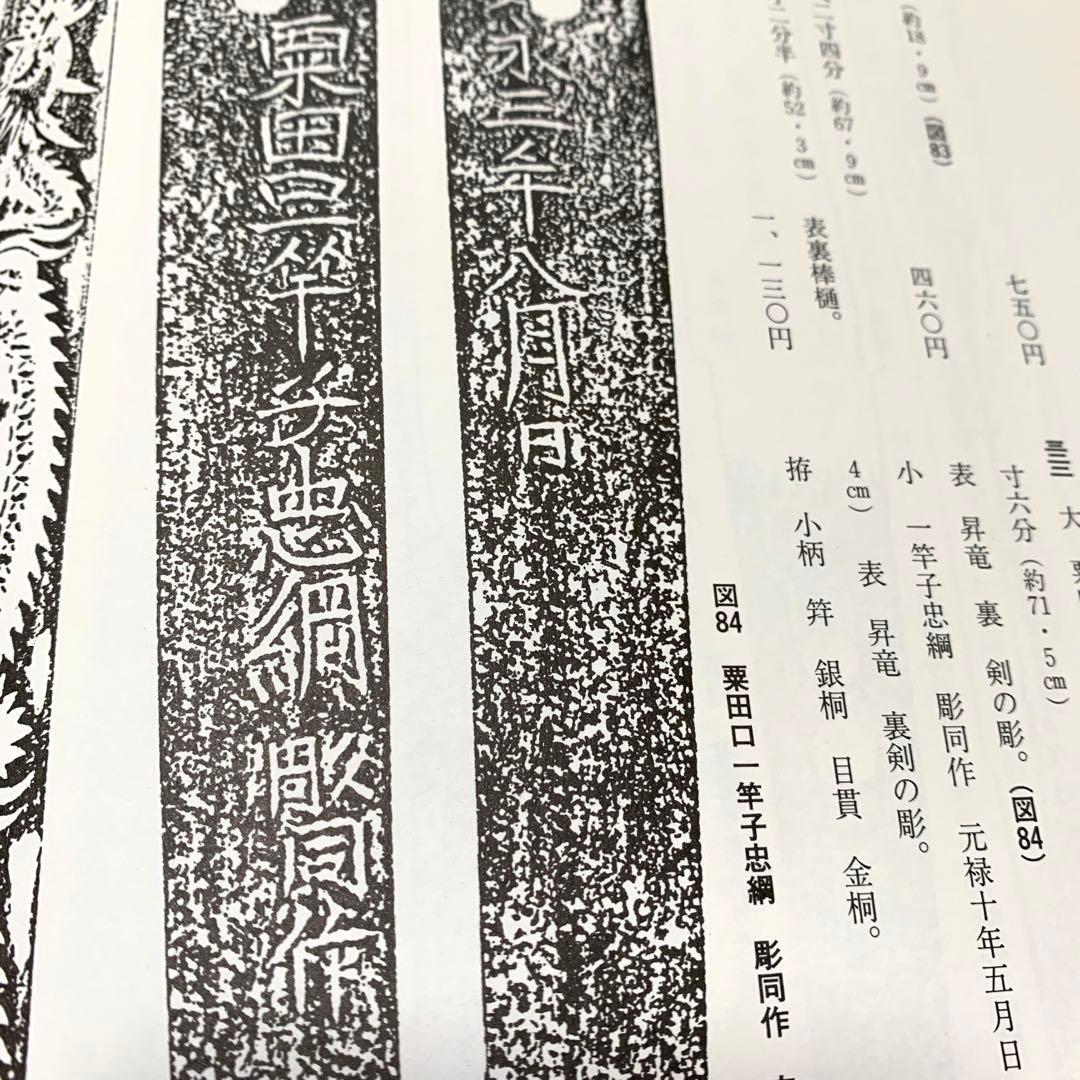 七五〇円
(約18・9㎝)(図83)
四六〇円
二寸四分(約67・9㎝)
表裏棒樋。
二分半(約52・3㎝)
一、一三〇円
大 粟
寸六分(約71・5㎝)
表 昇竜 裏 剣の彫。(図84)
小 一竿子忠綱 彫同作 元禄十年五月日
4㎝) 表 昇竜 裏剣の彫。
拵 小柄 笄 銀桐 目貫 金桐。
図84 粟田口一竿子忠綱 彫同作
永三年八月日
粟田口一竿子忠綱 彫同作